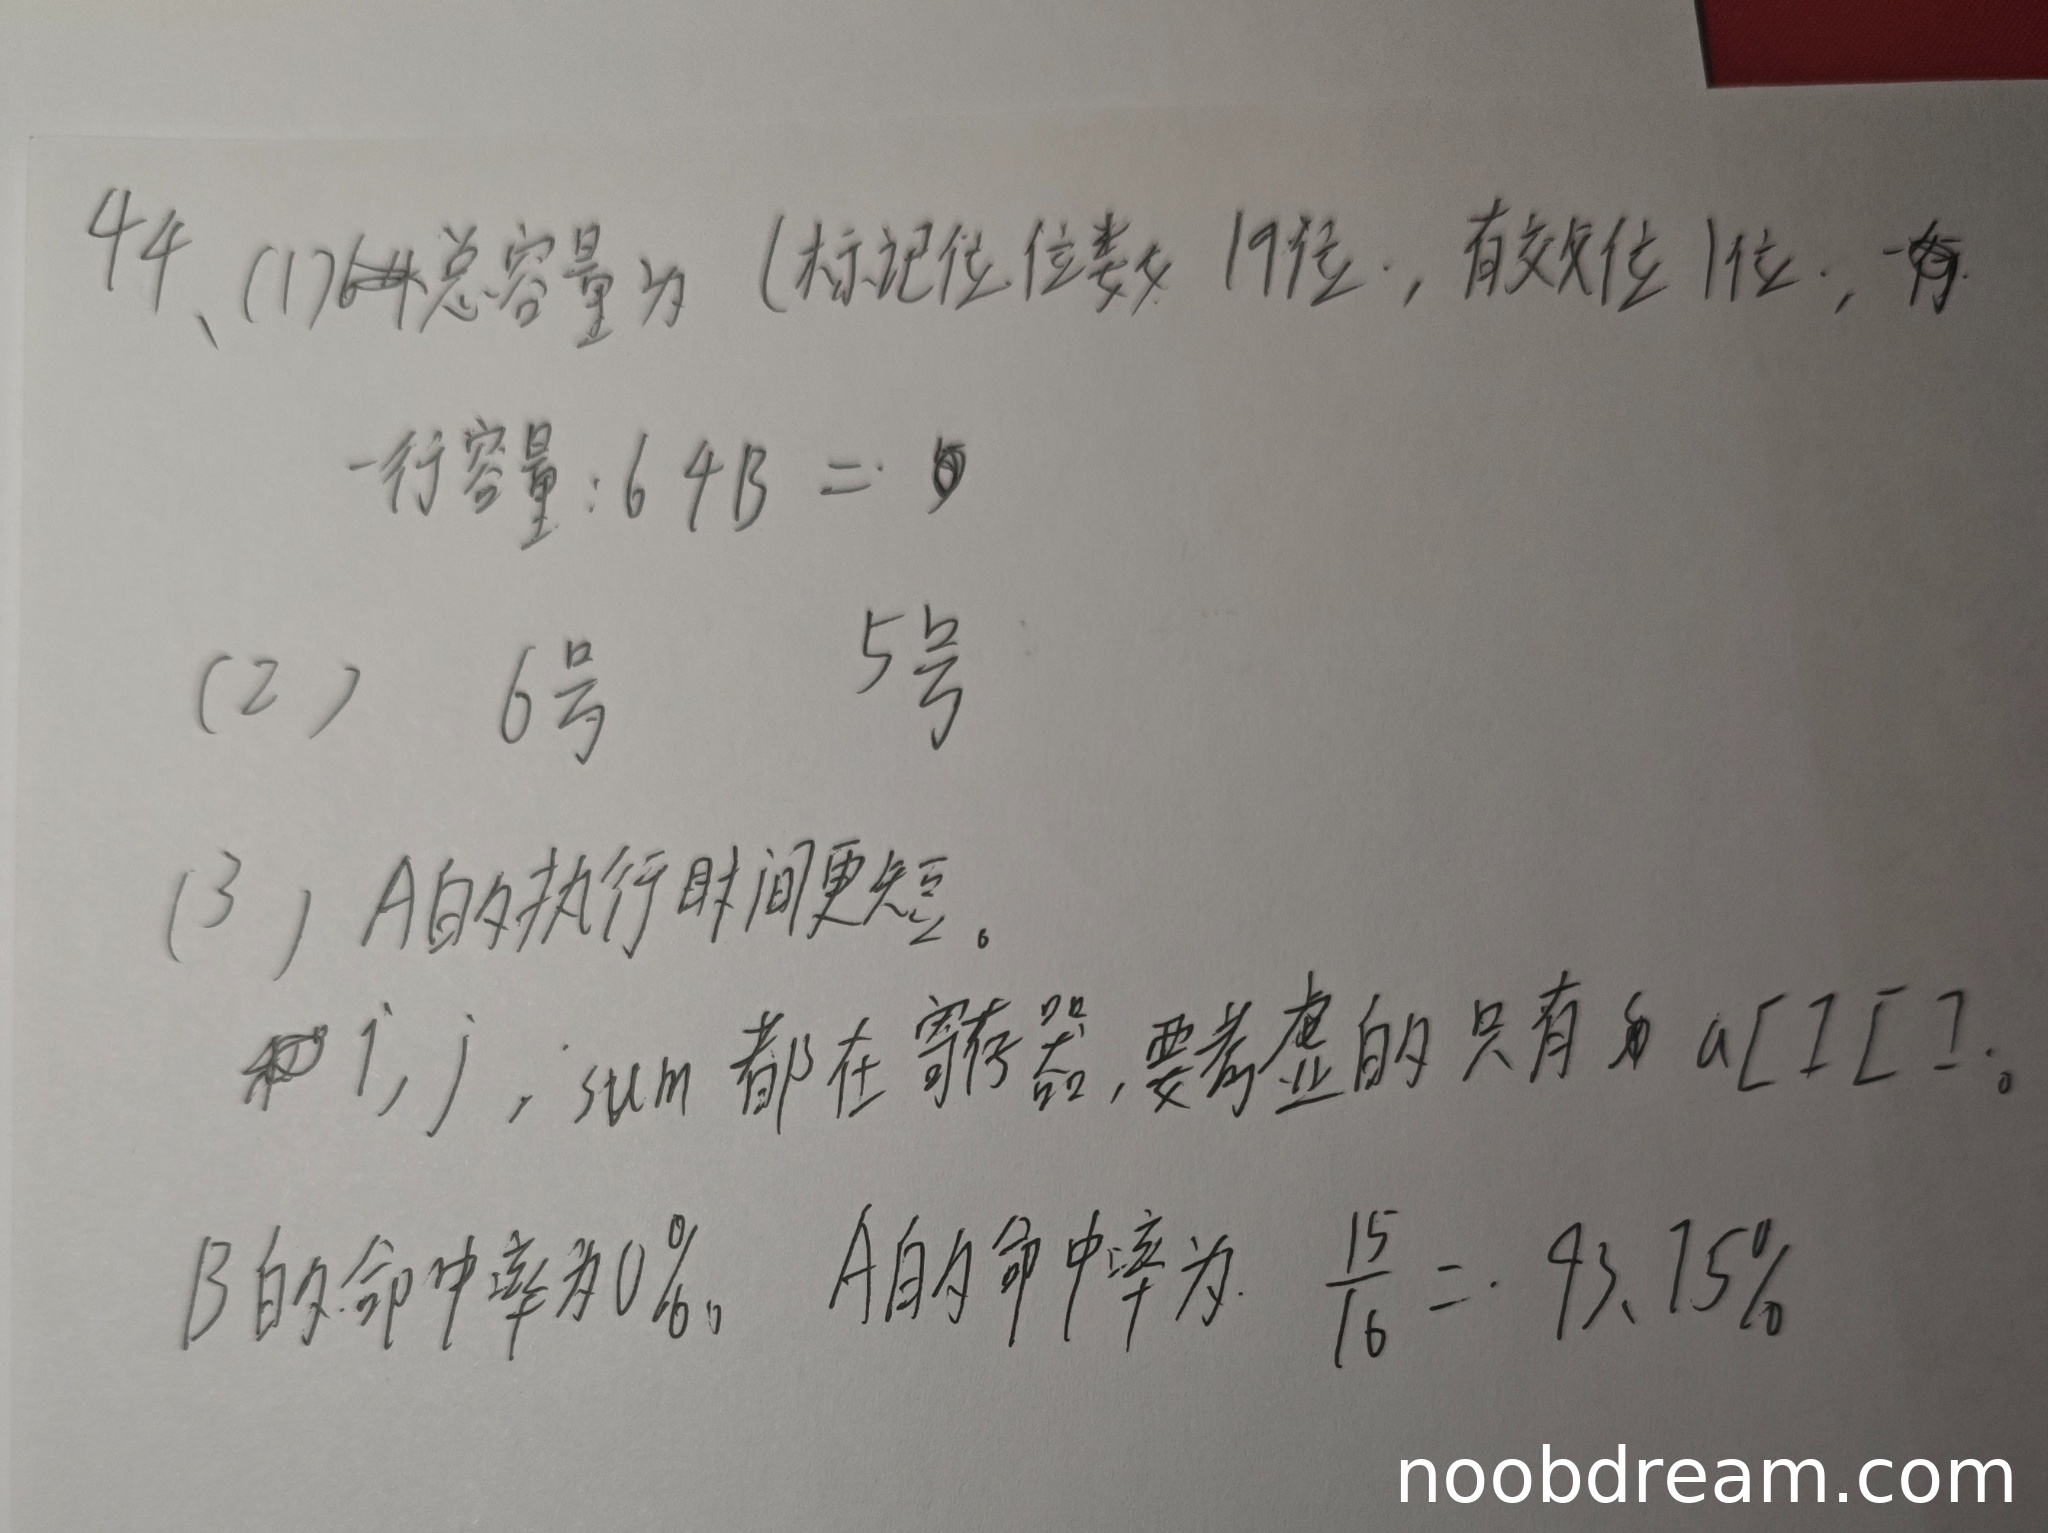 44、(1) 总容量为 (标记位位数 19位, 有效位 1位,
一行容量:64B =
(2) 6号 5号
(3) A的执行时间更短。
i, j, sum 都在寄存器,要考虑的只有 a[][]。
B的命中率为0%。 A的命中率为 15/16 = 93.75%
noobdream.com